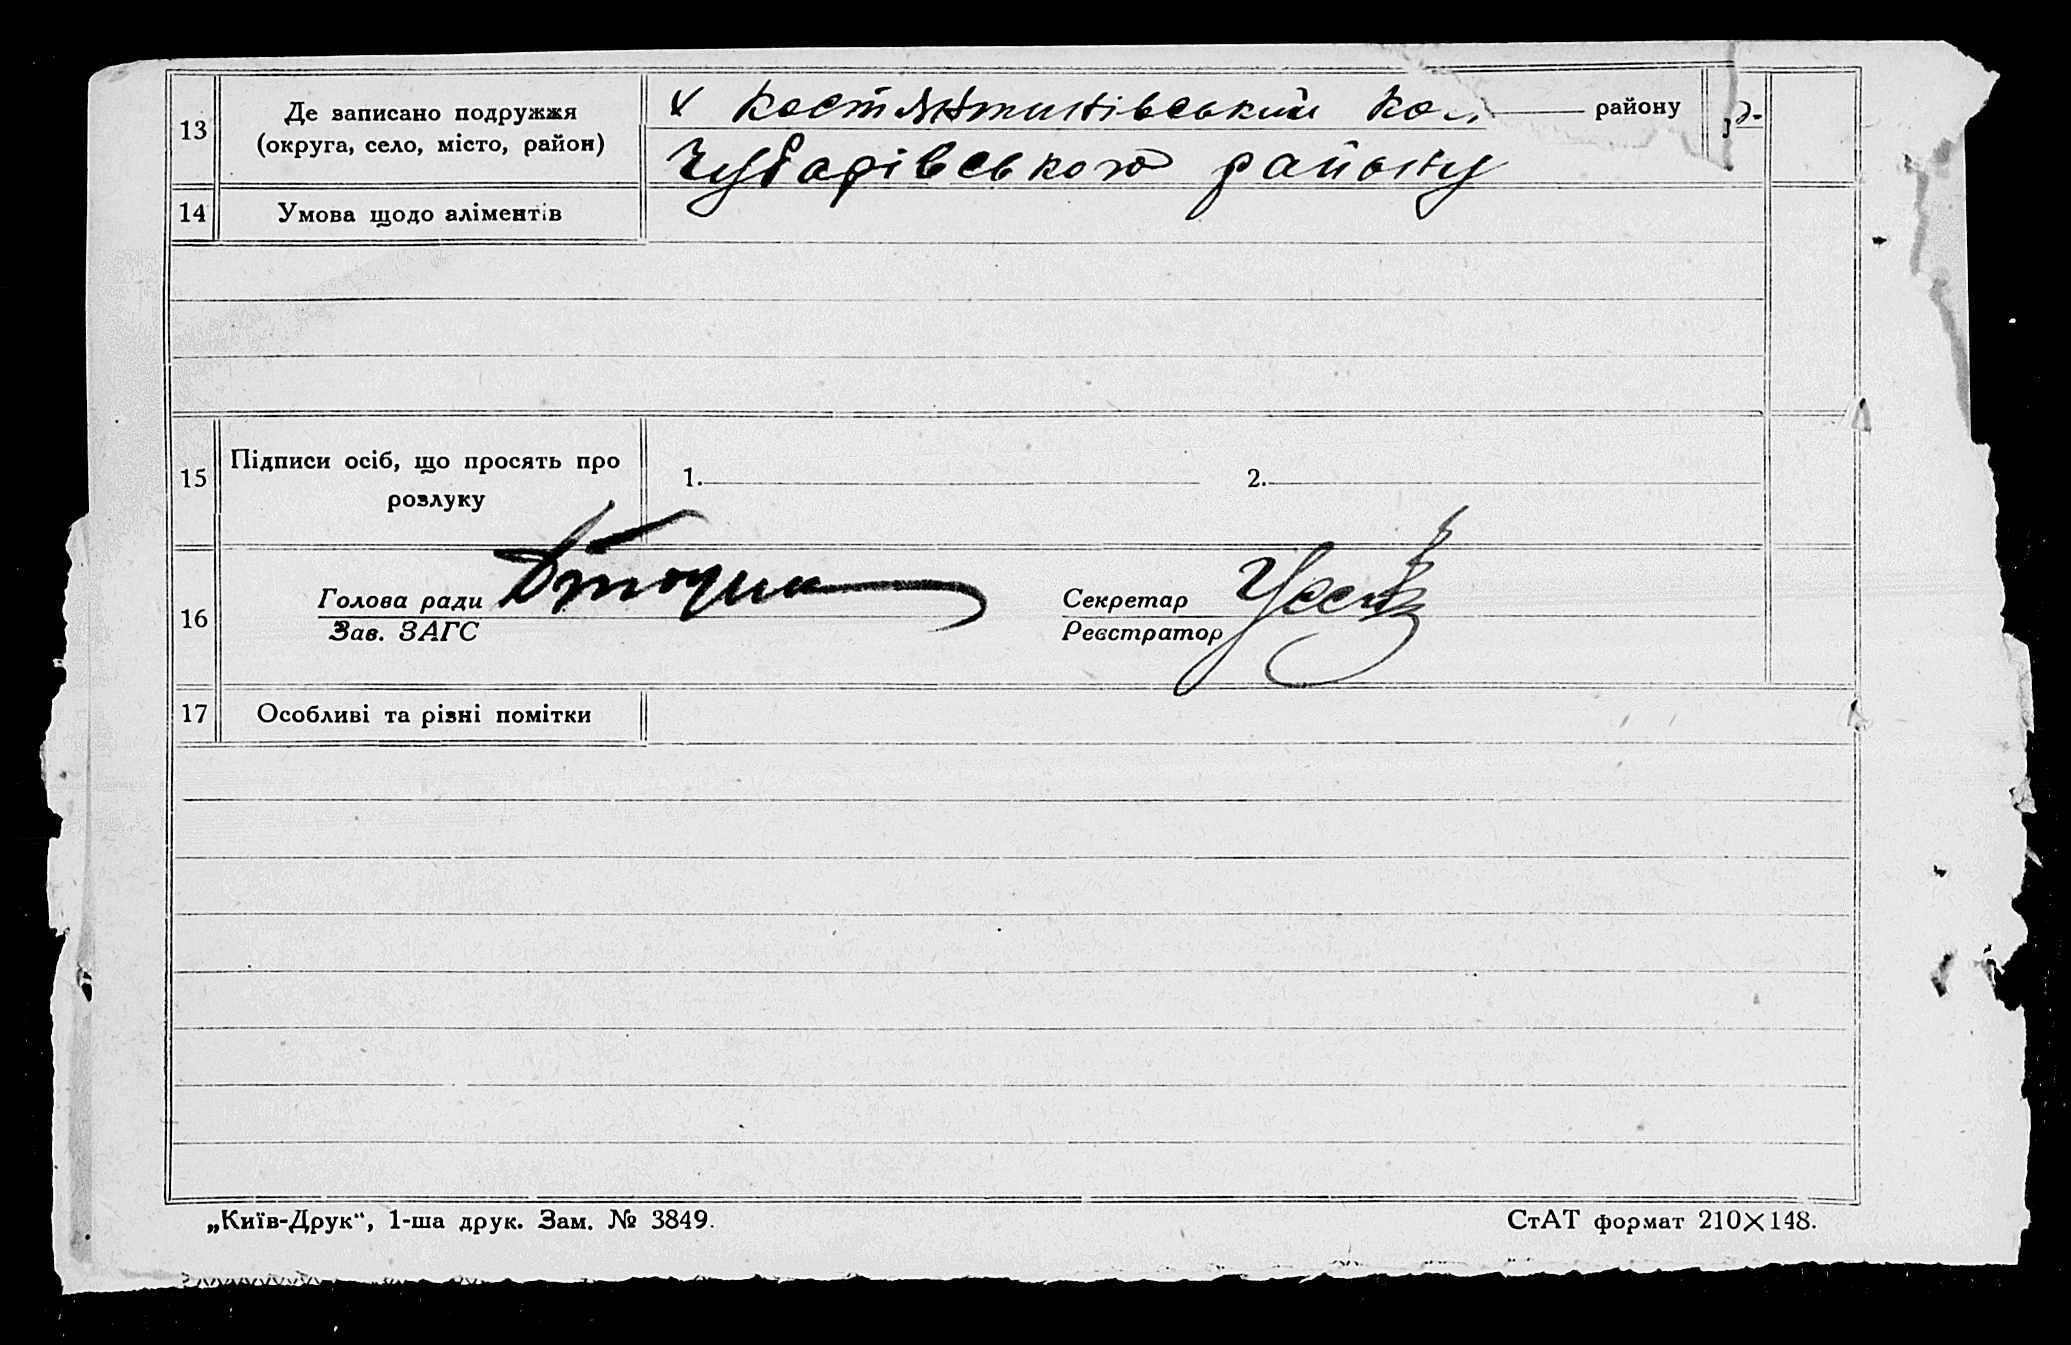 13
Де записано подружжя
(округа, село, місто, район)
Костянтинівський
району
Чубарівського району
14
Умова щодо аліментів
15
Підписи осіб, що просять про
розлуку
1.
2.
16
Голова ради
Зав. ЗАГС
Секретар
Реєстратор
17
Особливі та різні помітки
„Київ-Друк“, 1-ша друк. Зам. № 3849.
СтАТ формат 210×148.